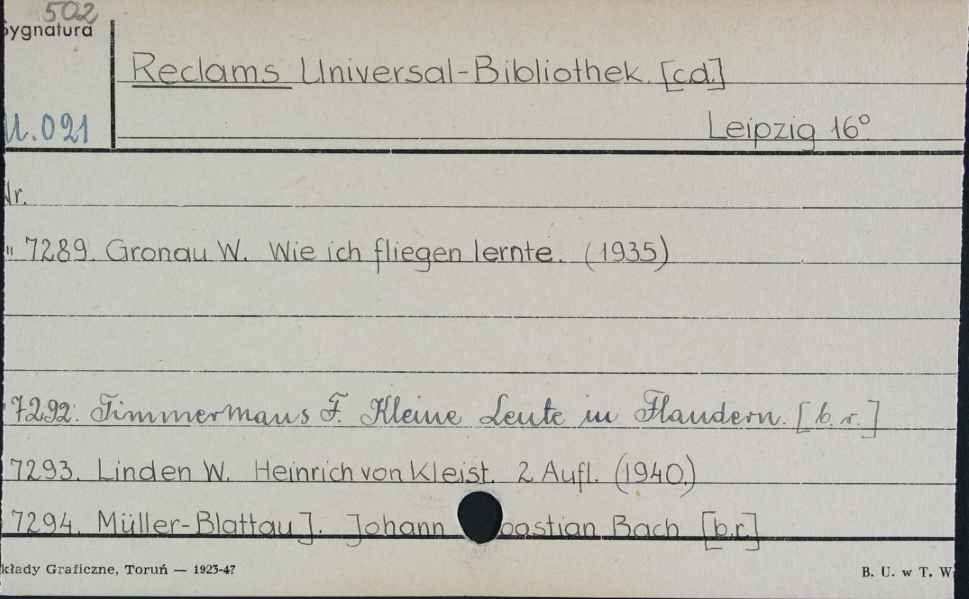 502
Sygnatura
Reclams Universal-Bibliothek. [cd.]
U.021
Leipzig 16°
Nr.
" 7289. Gronau W. Wie ich fliegen lernte. (1935)
7292. Timmermans F. Kleine Leute in Flandern. [b. r.]
7293. Linden W. Heinrich von Kleist. 2 Aufl. (1940.)
7294. Müller-Blattau J. Johann bastian Bach [b.r.]
kłady Graficzne, Toruń — 1923-47
B. U. w T. W